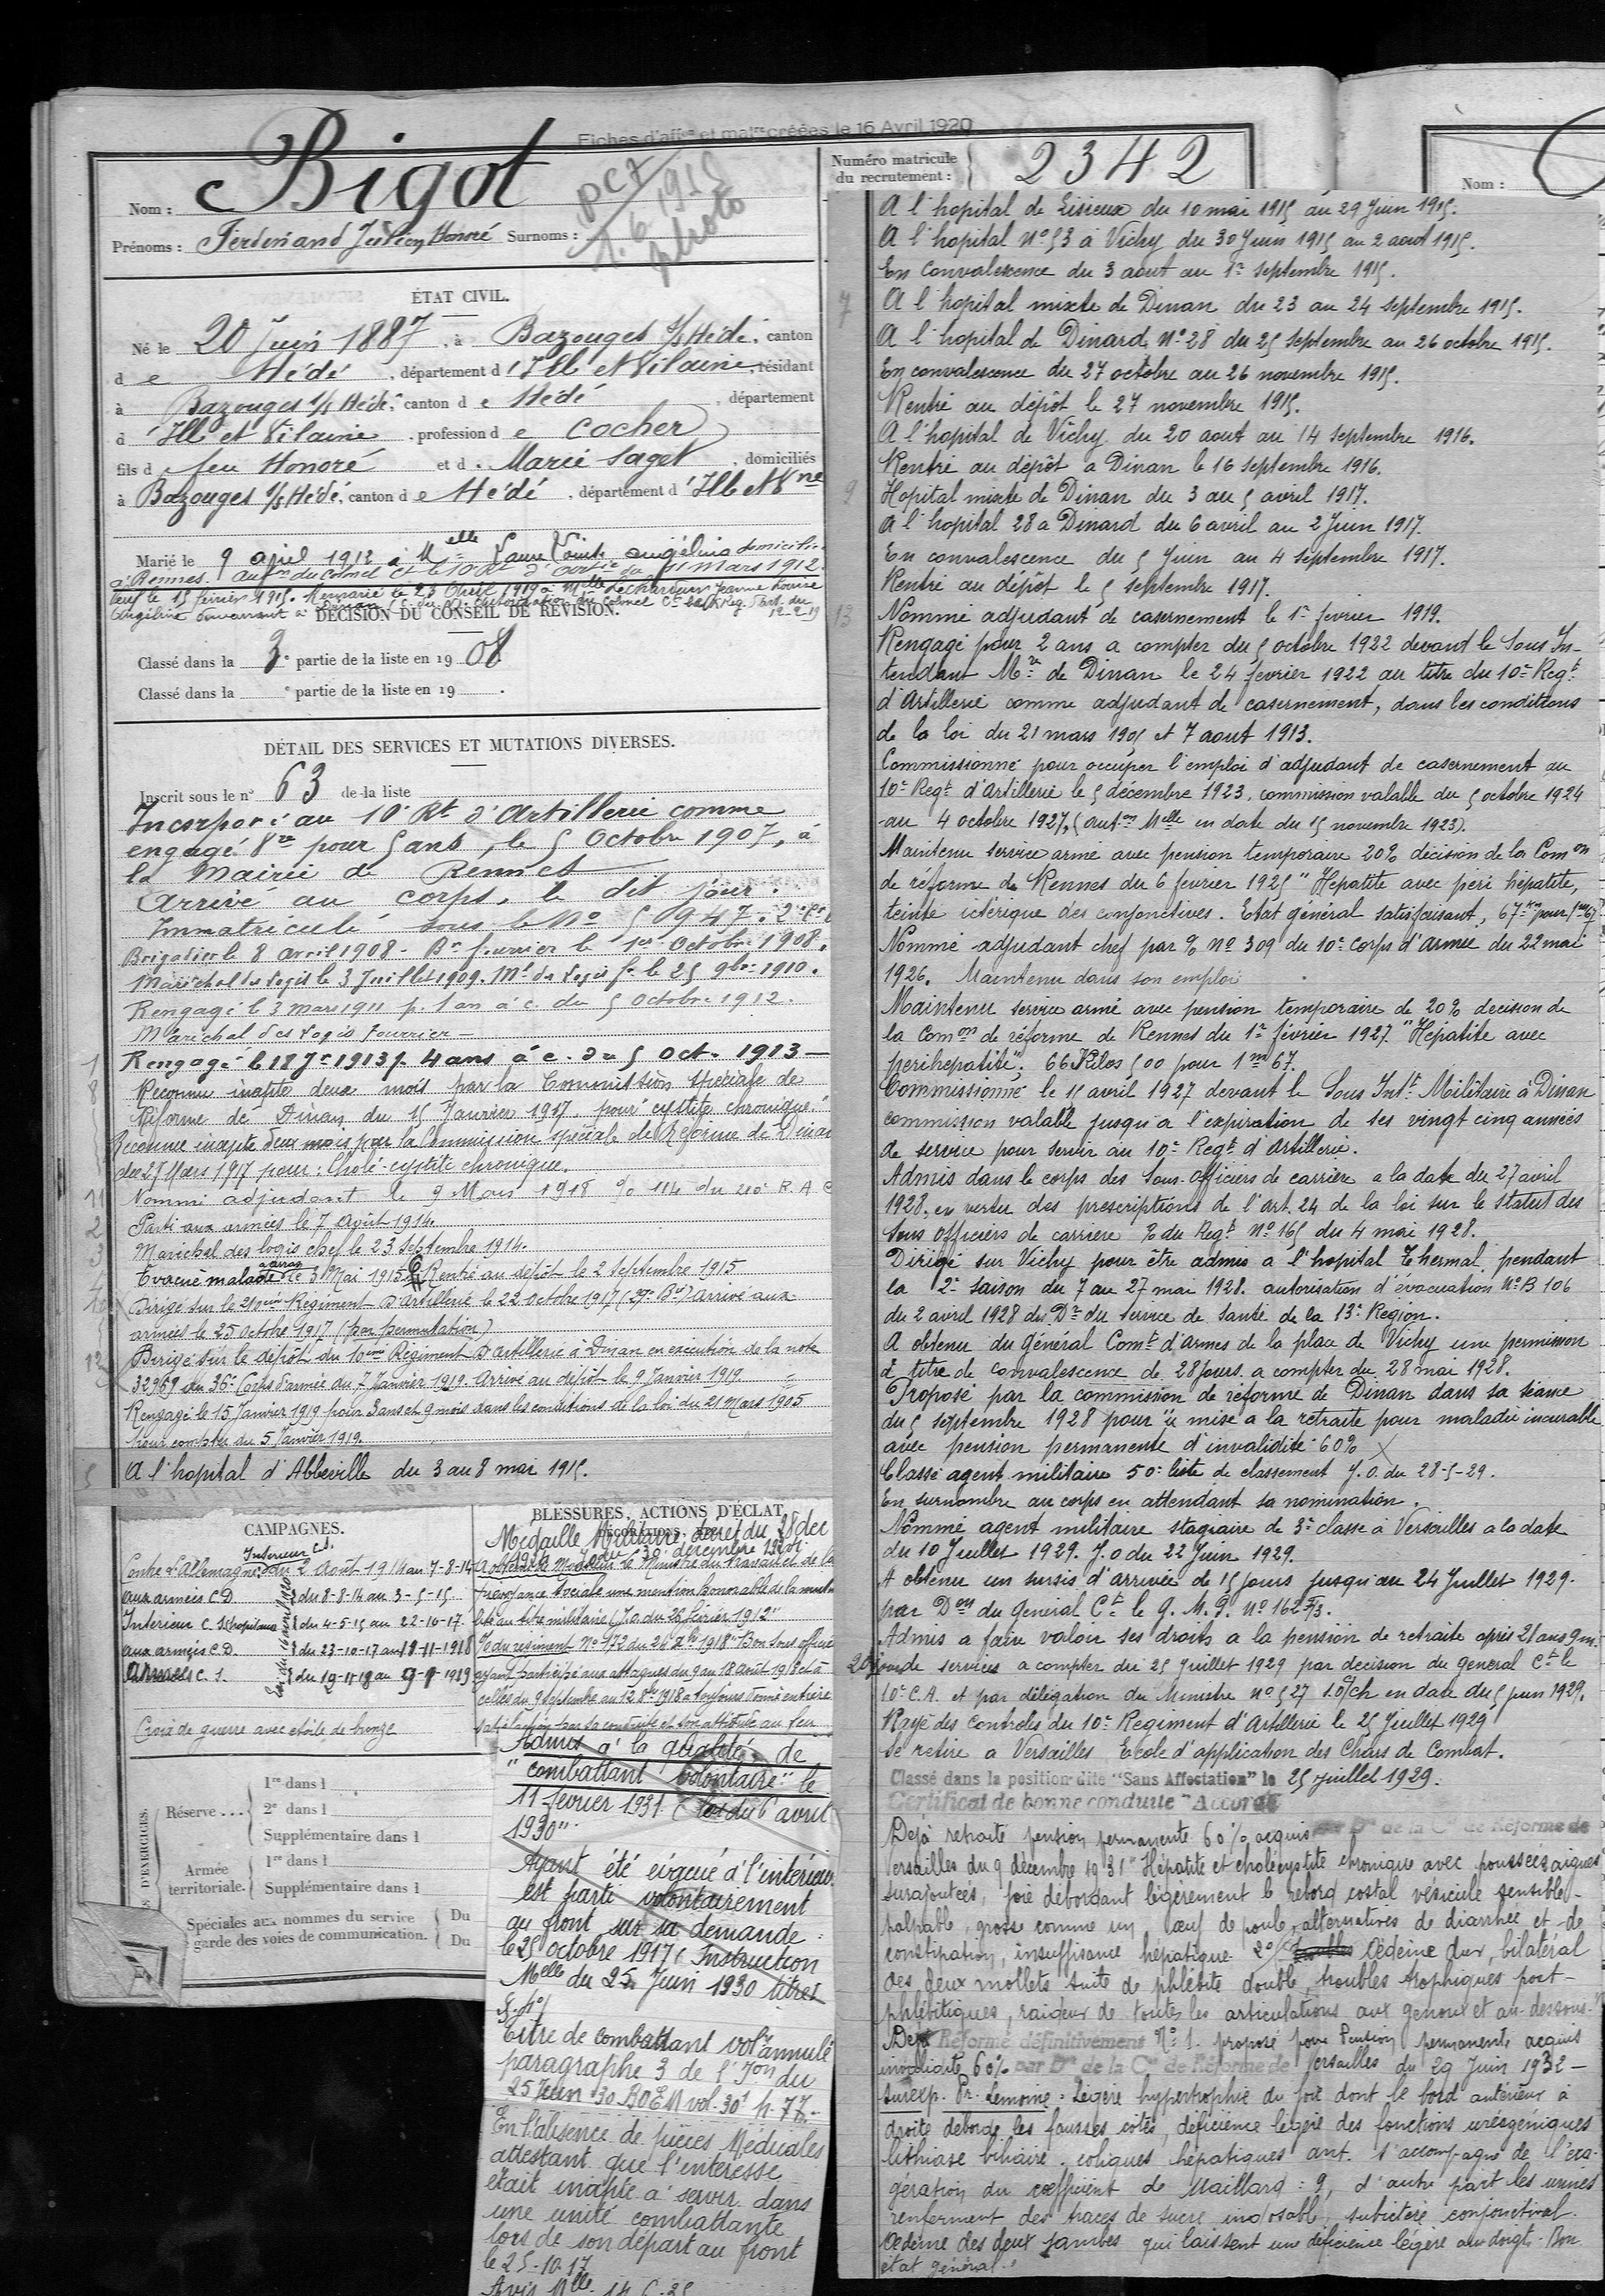 Fiches d'aff^on et mal^ces créées le 16 Avril 1920
Nom : Bigot
PC7
1.6.1915
photo
Prénoms : Ferdinand Julien Honoré Surnoms :
ÉTAT CIVIL.
Né le 20 Juin 1887, à Bazouges s/s Hédé, canton
d e Hédé, département d'Ille et Vilaine, résidant
à Bazouges s/s Hédé, canton d e Hédé, département
d'Ille et Vilaine, profession d e Cocher
fils d feu Honoré et d. Marie Saget, domiciliés
à Bazouges s/s Hédé, canton d e Hédé, département d'Ille et V^ne
Marié le 9 avril 1912 à M^elle Laure Angélina domiciliée
à Rennes. Aut^on du Colonel C^t le 10^e R^t d'Art^ie du 11 mars 1912.
Veuf le 15 février 1915. Remarié le 23 Avril 1919 à M^elle Jeanne Louise
Angéline
DÉCISION DU CONSEIL DE RÉVISION.
Classé dans la 3^e partie de la liste en 1908
Classé dans la ^e partie de la liste en 19 .
DÉTAIL DES SERVICES ET MUTATIONS DIVERSES.
Inscrit sous le n° 63 de la liste
Incorporé au 10^e R^t d'Artillerie comme
engagé V^re pour 5 ans, le 5 Octobre 1907, à
la Mairie de Rennes
Arrivé au corps, le dit jour.
Immatriculé sous le N° 5947. 2^e C^r
Brigadier le 8 avril 1908 - B^er fourrier le 1^er Octobre 1908.
Maréchal des logis le 3 Juillet 1909. M^al des Logis f^r le 25 9bre 1910.
Rengagé le 3 mars 1911 p. 1 an à c. du 5 Octobre 1912.
Maréchal des Logis Fourrier -
1 Rengagé le 18 7^e 1913 p. 4 ans à c. du 5 Oct. 1913 -
8 Reconnu inapte deux mois par la Commission spéciale de
Réforme de Dinan du 15 Janvier 1917 pour "cystite chronique."
Reconnu inapte deux mois par la Commission spéciale de Réforme de Dinan
du 27 Mars 1917 pour : Cholé-cystite chronique.
11 Nommé adjudant le 9 Mars 1918 % 114 du 210^e R.A.C
2 Parti aux armées le 7 Août 1914.
3 Maréchal des logis chef le 23 Septembre 1914.
4 Evacué malade le 3 Mai 1915. Rentré au dépôt le 2 Septembre 1915
10 Dirigé sur le 210^ème Régiment d'Artillerie le 22 octobre 1917 (27^e B^ie) arrivé aux
armées le 25 Octobre 1917 (par permutation)
12 Dirigé sur le dépôt du 10^ème Régiment d'artillerie à Dinan en exécution de la note
32969 du 36^e Corps d'armée du 7 Janvier 1919. Arrivé au dépôt le 9 Janvier 1919
Rengagé le 15 Janvier 1919 pour 3 ans et 9 mois dans les conditions de la loi du 21 Mars 1905
pour compter du 5 Janvier 1919.
5 A l'hopital d'Abbeville du 3 au 8 mai 1915.
CAMPAGNES.
Contre l'Allemagne : Intérieur C.S. du 2 Août 1914 au 7-8-14
aux armées C.D. du 8-8-14 au 3-5-15
Intérieur C. S. hopitaux du 4-5-15 au 22-10-17
aux armées C.D. du 23-10-17 au 18-11-1918
Armées C. S. du 19-11-18 au 9-1-1919
Croix de guerre avec étoile de bronze
BLESSURES, ACTIONS D'ÉCLAT,
Médaille Militaire décret du 28 dec
A obtenu de Monsieur le Ministre du travail et de la
Prévoyance Sociale une mention honorable de la mutua
lité au titre militaire (J.O. du 26 février 1912"
% du régiment N° 172 du 26 8bre 1918 "Bon sous officier
ayant participé aux attaques du 9 au 18 Août 1918 et à
celles du 9 septembre au 12 8bre 1918 a toujours donné entière
satisfaction par sa conduite et son attitude au feu
Admis à la qualité de
"combattant volontaire" le
11 février 1931. (loi du 6 avril
1930".
Ayant été évacué à l'intérieur
est parti volontairement
au front sur sa demande
le 25 octobre 1917 (Instruction
M^elle du 25 Juin 1930 titre
Titre de combattant vol^re annulé
paragraphe 3 de l'I^on du
25 Juin 30 BOEM vol. 30^1 p. 77.
En l'absence de pièces Médicales
attestant que l'intéressé
était inapte à servir dans
une unité combattante
lors de son départ au front
le 25-10-17
Avis M^elle
D'EXERCICES.
Réserve ... 1^re dans l
2^e dans l
Supplémentaire dans l
Armée territoriale. 1^re dans l
Supplémentaire dans l
Spéciales aux nommes du service Du
garde des voies de communication. Du
Numéro matricule
du recrutement : 2342
Nom :
A l'hopital de Lisieux du 10 mai 1915 au 29 Juin 1915.
A l'hopital N° 53 à Vichy du 30 Juin 1915 au 2 aout 1915.
En convalescence du 3 aout au 1^er septembre 1915.
7 A l'hopital mixte de Dinan du 23 au 24 septembre 1915.
A l'hopital de Dinard N° 28 du 25 septembre au 26 octobre 1915.
En convalescence du 27 octobre au 26 novembre 1915.
Rentré au dépôt le 27 novembre 1915.
A l'hopital de Vichy du 20 aout au 14 septembre 1916.
Rentré au dépôt à Dinan le 16 septembre 1916.
9 Hopital mixte de Dinan du 3 au 5 avril 1917.
A l'hopital 28 a Dinard du 6 avril au 2 Juin 1917.
En convalescence du 5 Juin au 4 septembre 1917.
Rentré au dépôt le 5 septembre 1917.
13 Nommé adjudant de casernement le 1^er fevrier 1919.
Rengagé pour 2 ans a compter du 5 octobre 1922 devant le Sous In-
tendant M^re de Dinan le 24 fevrier 1922 au titre du 10^e Reg^t
d'Artillerie comme adjudant de casernement, dans les conditions
de la loi du 21 mars 1905 et 7 aout 1913.
Commissionné pour occuper l'emploi d'adjudant de casernement au
10^e Reg^t d'Artillerie le 5 décembre 1923, commission valable du 5 octobre 1924
au 4 octobre 1927, (aut^on M^elle en date du 15 novembre 1923).
Maintenu service armé avec pension temporaire 20% décision de la Com^on
de réforme de Rennes du 6 fevrier 1925 "Hepatite avec péri hépatite,
teinte ictérique des conjonctives. Etat général satisfaisant, 67^k pour 1^m67.
Nommé adjudant chef par % N° 309 du 10^e corps d'Armée du 22 mai
1926. Maintenu dans son emploi
Maintenu service armé avec pension temporaire de 20% decision de
la Com^on de réforme de Rennes du 1^er février 1927. "Hepatite avec
perihepatite", 66 Kilos 500 pour 1^m 67.
Commissionné le 15 avril 1927 devant le Sous Int^t Militaire à Dinan
commission valable jusqu'a l'expiration de ses vingt cinq années
de service pour servir au 10^e Reg^t d'Artillerie.
Admis dans le corps des Sous-officiers de carrière a la date du 27 avril
1928, en vertu des prescriptions de l'art. 24 de la loi sur le statut des
Sous officiers de carriere % du Reg^t N° 165 du 4 mai 1928.
Dirigé sur Vichy pour être admis a l'hopital Thermal, pendant
la 2^e saison du 7 au 27 mai 1928. autorisation d'évacuation N° B 106
du 2 avril 1928 du D^r du service de Santé de la 13^e Region.
A obtenu du Général Com^t d'armes de la place de Vichy une permission
à titre de convalescence de 28 jours a compter du 28 mai 1928.
Proposé par la commission de réforme de Dinan dans sa séance
du 5 septembre 1928 pour "la mise a la retraite pour maladie incurable
avec pension permanente d'invalidité 60%
Classé agent militaire 50^e liste de classement J.O. du 28-5-29.
En surnombre au corps en attendant sa nomination.
Nommé agent militaire stagiaire de 3^e classe à Versailles a la date
du 10 Juillet 1929. J.O du 22 Juin 1929.
A obtenu un sursis d'arrivée de 15 jours jusqu'au 24 Juillet 1929.
par D^on du General C^t le G. M. P. N° 162
Admis a faire valoir ses droits a la pension de retraite après 21 ans 9 m.
20 jours de services a compter du 25 Juillet 1929 par decision du General C^t le
10^e C.A. et par délégation du Ministre N° 527 1.0/Ch en date du 5 juin 1929.
Rayé des contrôles du 10^e Regiment d'Artillerie le 25 Juillet 1929
Se retire a Versailles Ecole d'application des Chars de Combat.
Classé dans la position dite "Sans Affectation" le 25 Juillet 1929.
Certificat de bonne conduite "Accordé
Dejà retraité pension permanente 60% acquis par D^on de la C^on de Réforme de
Versailles du 9 décembre 1931 "Hépatite et cholécystite chronique avec poussées aigues
surajoutées, foie débordant légèrement le rebord costal vésicule sensible,
palpable, grosse comme un oeuf de poule, alternatives de diarrhée et de
constipation, insuffisance hépatique 2°/ Œdème dur, bilatéral
des deux mollets suite de phlébite double, troubles trophiques post-
phlébitiques, raideur de toutes les articulations aux genoux et au-dessous."
Déjà Réformé définitivement N° 1. proposé pour Pension permanente acquis
invalidité 60% par D^on de la C^on de Réforme de Versailles du 29 Juin 1932 -
surexp. Pr. Lemoine = Légère hypertrophie du foie dont le bord antérieur à
droite déborde les fausses côtes, déficience légère des fonctions uréogéniques
lithiase biliaire. coliques hépatiques ant. s'accompagne de l'exa-
gération du coefficient de Maillard : 9, d'autre part les urines
renferment des traces de sucre indosable, subictère conjonctival.
Œdème des deux jambes qui laissent une déficience légère au doigt. Bon
état général."